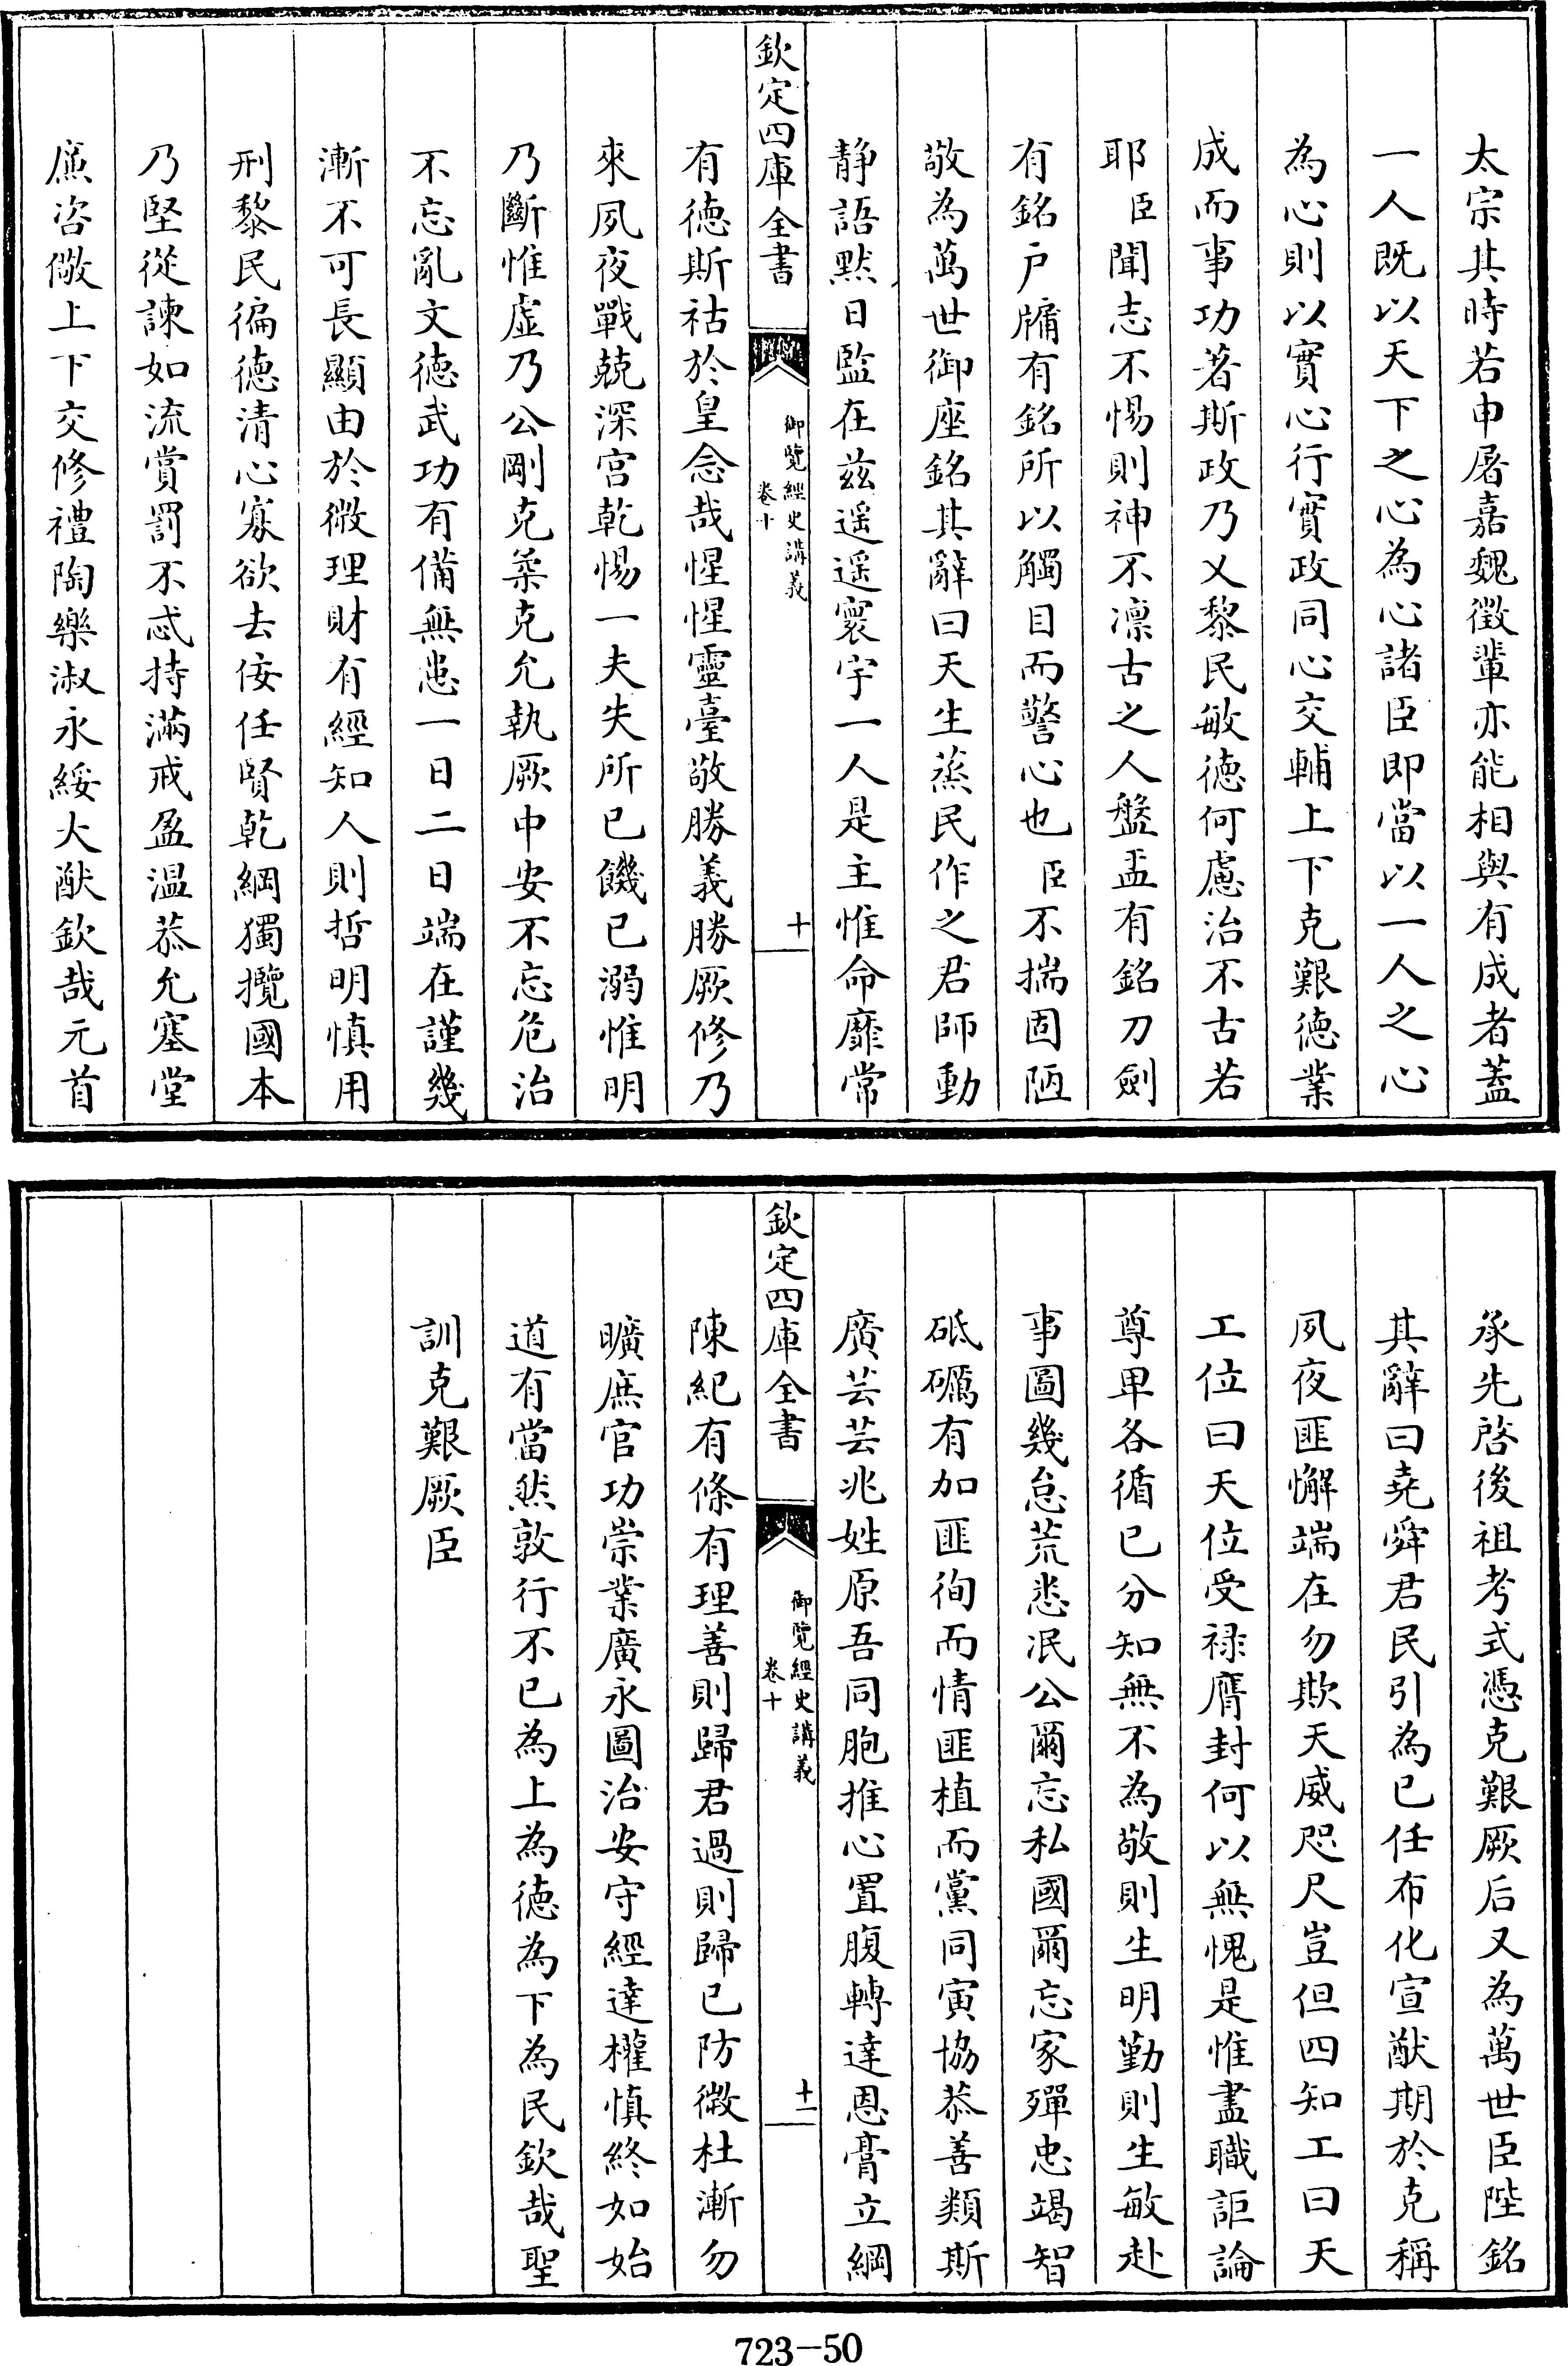 太宗其時若申屠嘉魏徵輩亦能相與有成者蓋
一人既以天下之心為心諸臣即當以一人之心
為心則以實心行實政同心交輔上下克艱德業
成而事功著斯政乃乂黎民敏徳何慮治不古若
耶臣聞志不惕則神不凛古之人盤盂有銘刀劍
有銘戶牖有銘所以觸目而警心也臣不揣固陋
敬為萬世御座銘其辭曰天生蒸民作之君師動
靜語黙日監在兹遥遥寰宇一人是主惟命靡常
欽定四庫全書
御覽經史講義
卷十
十
有徳斯祜於皇念哉惺惺靈臺敬勝義勝厥修乃
來夙夜戰兢深宫乾惕一夫失所已饑已溺惟明
乃斷惟虚乃公剛克柔克允執厥中安不忘危治
不忘亂文徳武功有備無患一日二日端在謹幾
漸不可長顯由於微理財有經知人則哲明慎用
刑黎民徧徳清心寡欲去佞任賢乾綱獨攬國本
乃堅從諫如流賞罰不忒持滿戒盈温恭允塞堂
廉咨儆上下交修禮陶樂淑永綏大猷欽哉元首
承先啓後祖考式憑克艱厥后又為萬世臣陛銘
其辭曰堯舜君民引為已任布化宣猷期於克稱
夙夜匪懈端在勿欺天威咫尺豈但四知工曰天
工位曰天位受禄膺封何以無愧是惟盡職詎論
尊卑各循已分知無不為敬則生明勤則生敏赴
事圖幾怠荒悉泯公爾忘私國爾忘家殫忠竭智
砥礪有加匪徇而情匪植而黨同寅協恭善類斯
廣芸芸兆姓原吾同胞推心置腹轉達恩膏立綱
欽定四庫全書
御覽經史講義
卷十
十一
陳紀有條有理善則歸君過則歸已防微杜漸勿
曠庶官功崇業廣永圖治安守經達權慎終如始
道有當然敦行不已為上為徳為下為民欽哉聖
訓克艱厥臣
723-50